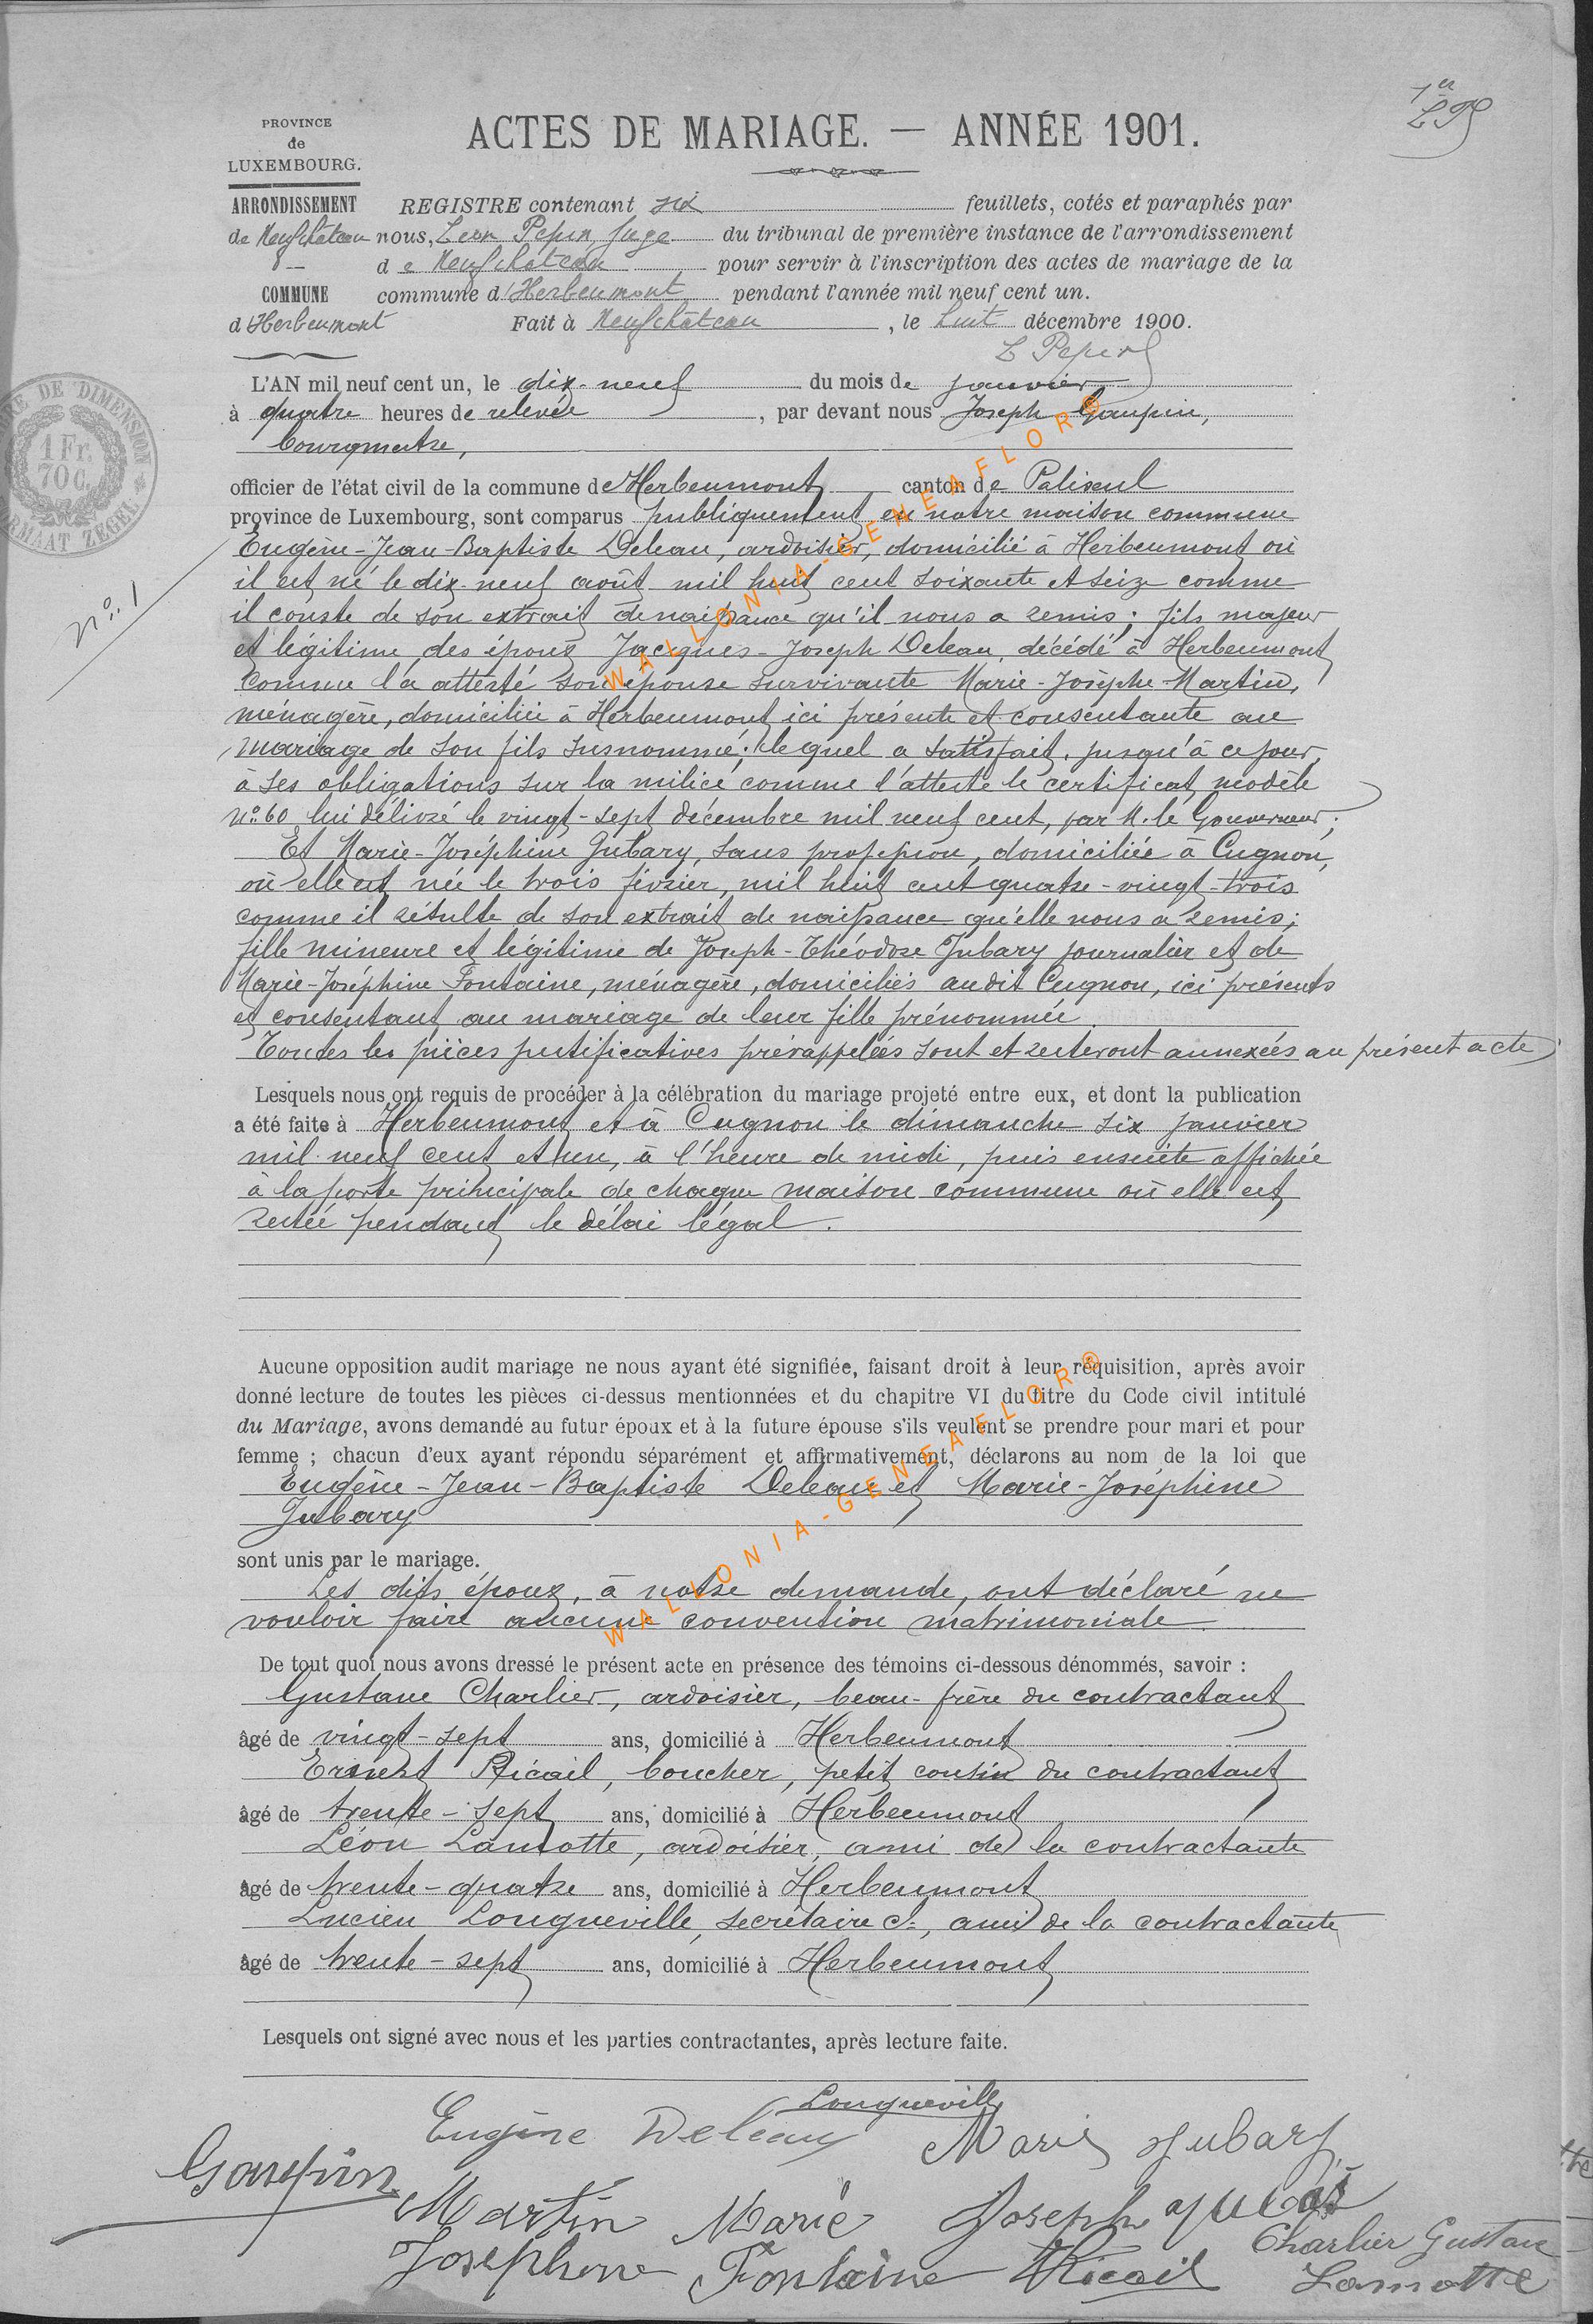 1er
PROVINCE
de
LUXEMBOURG.
ACTES DE MARIAGE. — ANNÉE 1901.
ARRONDISSEMENT
de Neufchâteau
COMMUNE
d'Herbeumont
REGISTRE contenant six feuillets, cotés et paraphés par
nous, Léon Pepin, Juge du tribunal de première instance de l'arrondissement
de Neufchâteau pour servir à l'inscription des actes de mariage de la
commune d'Herbeumont pendant l'année mil neuf cent un.
Fait à Neufchâteau, le huit décembre 1900.
L Pepin
L'AN mil neuf cent un, le dix-neuf du mois de janvier
à quatre heures de relevée, par devant nous Joseph Gaupin,
bourgmestre,
officier de l'état civil de la commune de Herbeumont canton de Paliseul
province de Luxembourg, sont comparus publiquement en notre maison commune
Eugène-Jean-Baptiste Deleau, ardoisier, domicilié à Herbeumont où
il est né le dix-neuf août mil huit cent soixante et seize comme
il conste de son extrait de naissance qu'il nous a remis; fils majeur
et légitime des époux Jacques-Joseph Deleau, décédé à Herbeumont
comme l'a attesté son épouse survivante Marie-Josèphe Martin,
ménagère, domiciliée à Herbeumont ici présente et consentante au
mariage de son fils susnommé; lequel a satisfait, jusqu'à ce jour,
à ses obligations sur la milice comme l'atteste le certificat modèle
n° 60 lui délivré le vingt-sept décembre mil neuf cent, par M. le Gouverneur;
Et Marie-Joséphine Jubary, sans profession, domiciliée à Cugnon,
où elle est née le trois février, mil huit cent quatre-vingt-trois
comme il résulte de son extrait de naissance qu'elle nous a remis;
fille mineure et légitime de Joseph-Théodore Jubary journalier et de
Marie-Joséphine Fontaine, ménagère, domiciliés audit Cugnon, ici présents
et consentant au mariage de leur fille prénommée.
Toutes les pièces justificatives prérappelées sont et resteront annexées au présent acte;
N° 1
Lesquels nous ont requis de procéder à la célébration du mariage projeté entre eux, et dont la publication
a été faite à Herbeumont et à Cugnon le dimanche six janvier
mil neuf cent et un, à l'heure de midi, puis ensuite affichée
à la porte principale de chaque maison commune où elle est
restée pendant le délai légal.
Aucune opposition audit mariage ne nous ayant été signifiée, faisant droit à leur réquisition, après avoir
donné lecture de toutes les pièces ci-dessus mentionnées et du chapitre VI du titre du Code civil intitulé
du Mariage, avons demandé au futur époux et à la future épouse s'ils veulent se prendre pour mari et pour
femme ; chacun d'eux ayant répondu séparément et affirmativement, déclarons au nom de la loi que
Eugène-Jean-Baptiste Deleau et Marie-Joséphine
Jubary
sont unis par le mariage.
Les dits époux, à notre demande, ont déclaré ne
vouloir faire aucune convention matrimoniale.
De tout quoi nous avons dressé le présent acte en présence des témoins ci-dessous dénommés, savoir :
Gustave Charlier, ardoisier, beau-frère du contractant
âgé de vingt-sept ans, domicilié à Herbeumont
Ernest Ricail, boucher, petit cousin du contractant
âgé de trente-sept ans, domicilié à Herbeumont
Léon Lamotte, ardoisier, ami de la contractante
âgé de trente-quatre ans, domicilié à Herbeumont
Lucien Longueville, secrétaire cl, ami de la contractante
âgé de trente-sept ans, domicilié à Herbeumont
Lesquels ont signé avec nous et les parties contractantes, après lecture faite.
Longueville
Eugène Deleau Marie Jubary
Gaupin
Martin Marie Joseph Jubary
Josephine Fontaine Ricail
Charlier Gustave
Lamotte
1 Fr.
70 C.
WALLONIA-GENEAFLOR®
WALLONIA-GENEAFLOR®